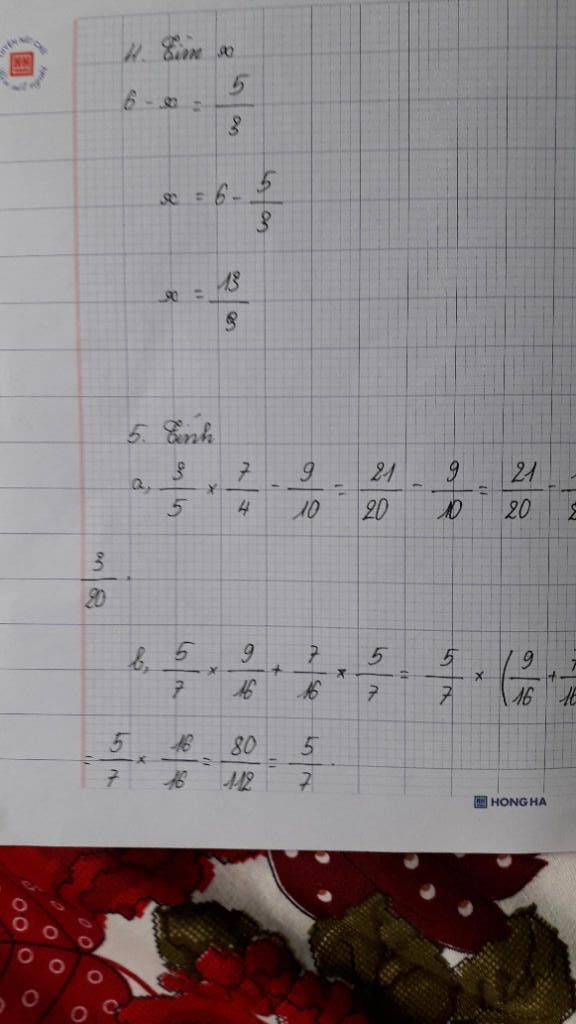 4. Tìm x
6 - x = 5/3
x = 6 - 5/3
x = 13/3
5. Tính
a, 3/5 × 7/4 - 9/10 = 21/20 - 9/10 = 21/20 -
3/20.
b, 5/7 × 9/16 + 7/16 × 5/7 = 5/7 × (9/16 + 7/16
= 5/7 × 16/16 = 80/112 = 5/7.
HONG HA